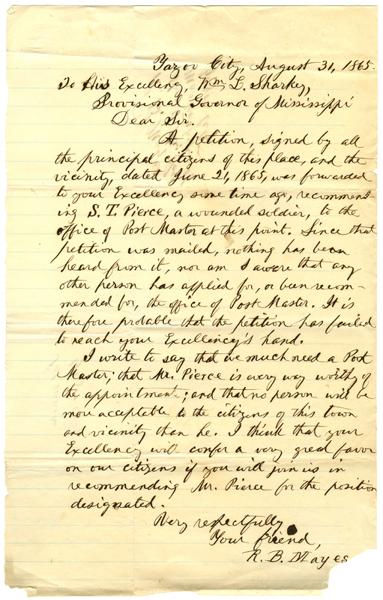 Yazoo City, August 31, 1865.
To His Excellency, Wm L. Sharkey,
Provisional Governor of Mississippi
Dear Sir.
A petition, signed by all
the principal citizens of this place, and the
vicinity, dated June 21, 1865, was forwarded
to your Excellency some time ago, recommend-
ing S. T. Pierce, a wounded soldier, to the
office of Post Master at this point. Since that
petition was mailed, nothing has been
heard from it, nor am I aware that any
other person has applied for, or been recom-
mended for, the office of Post Master. It is
therefore probable that the petition has failed
to reach your Excellency's hand.
I write to say that we much need a Post
Master; that Mr. Pierce is every way worthy of
the appointment; and that no person will be
more acceptable to the citizens of this town
and vicinity than he. I think that your
Excellency will confer a very great favor
on our citizens if you will join us in
recommending Mr. Pierce for the position
designated.
Very respectfully
Your friend,
R. B. Mayes